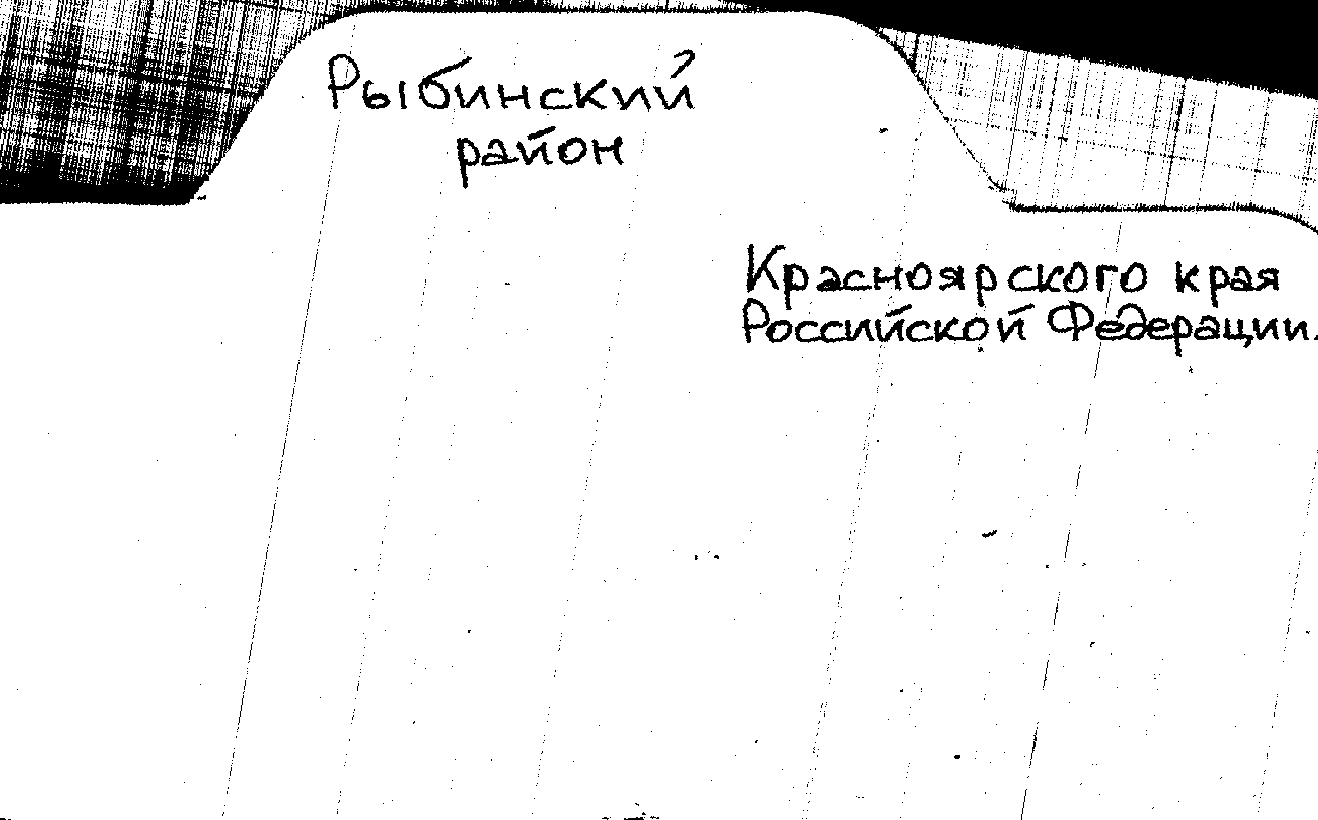 Рыбинский
район
Красноярского края
Российской Федерации.